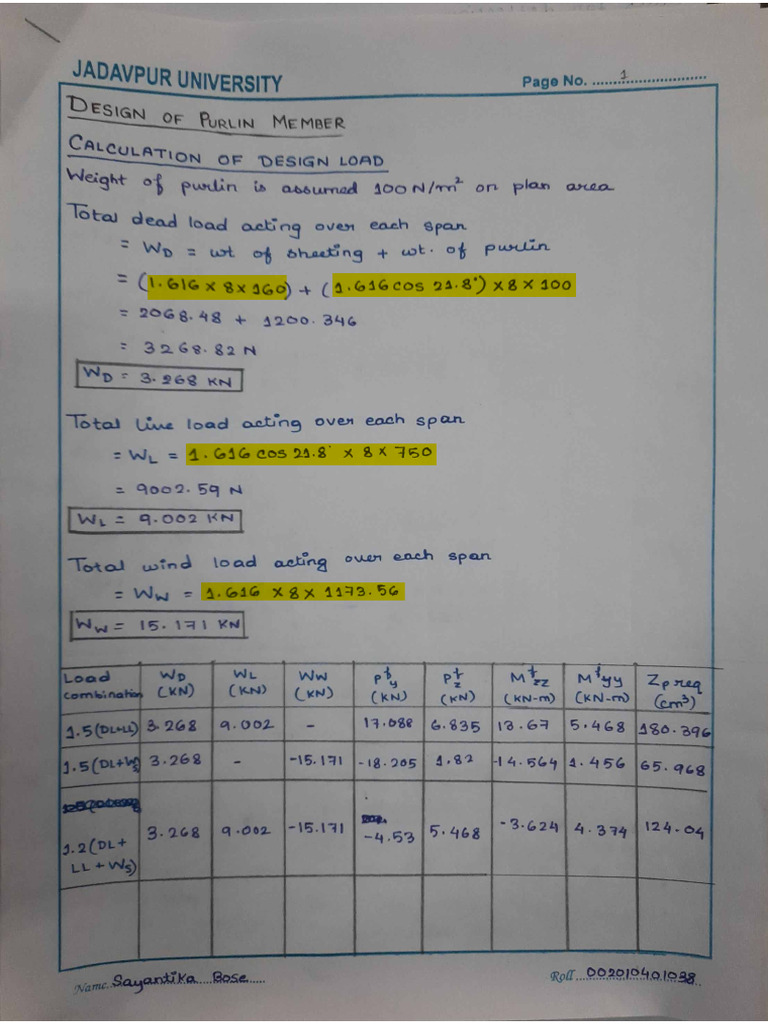 JADAVPUR UNIVERSITY
Page No. 1
DESIGN OF PURLIN MEMBER
CALCULATION OF DESIGN LOAD
Weight of purlin is assumed 100 N/m² on plan area
Total dead load acting over each span
= WD = wt of sheeting + wt. of purlin
= (1.616 × 8 × 160) + (1.616 cos 21.8°) × 8 × 100
= 2068.48 + 1200.346
= 3268.82 N
WD = 3.268 KN
Total live load acting over each span
= WL = 1.616 cos 21.8° × 8 × 750
= 9002.59 N
WL = 9.002 KN
Total wind load acting over each span
= Ww = 1.616 × 8 × 1173.56
Ww = 15.171 KN
Load combination WD (KN) WL (KN) WW (KN) Pfy (KN) Pfz (KN) Mfzz (KN-m) Mfyy (KN-m) Zp req (cm³)
1.5(DL+LL) 3.268 9.002 - 17.088 6.835 13.67 5.468 180.396
1.5(DL+Ws 3.268 - -15.171 -18.205 1.82 -14.564 1.456 65.968
1.2(DL+ LL+Ws) 3.268 9.002 -15.171 -4.53 5.468 -3.624 4.374 124.04
Name Sayantika Bose
Roll 002010401038